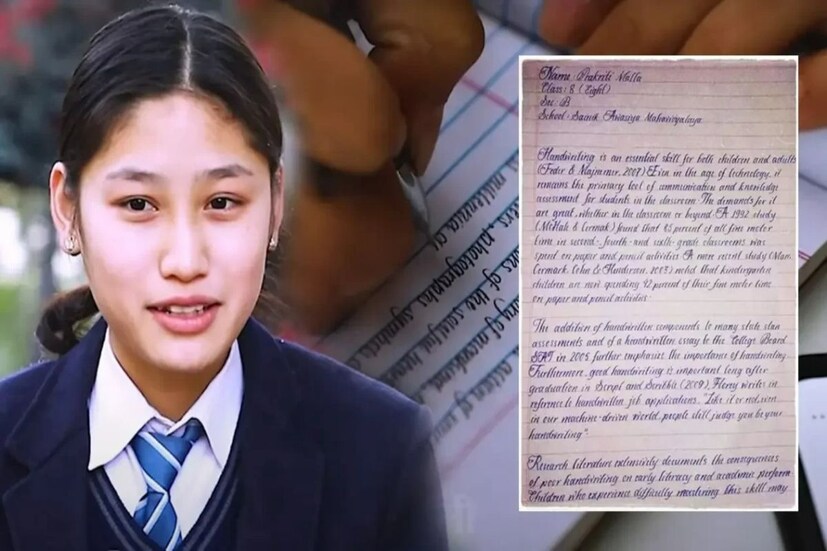 Name: Prakriti Malla
Class: 8 (Eight)
Sec: B
School:- Sainik Awasiya Mahavidyalaya
Handwriting is an essential skill for both children and adults
(Feder & Majnemer, 2007) Even in the age of technology, it
remains the primary tool of communication and knowledge
assessment for students in the classroom. The demands for it
are great, whether in the classroom or beyond. A 1992 study
(McHale & Cermak) found that 85 percent of all fine motor
time in second-, fourth- and sixth-grade classrooms was
spent on paper and pencil activities. A more recent study (Marr,
Cermark, Cohn & Henderson, 2003) noted that kindergarten
children are now spending 42 percent of their fine motor time
on paper and pencil activities.
The addition of handwritten components to many state
assessments and of a handwritten essay to the College Board
SAT in 2005 further emphasize the importance of handwriting.
Furthermore, good handwriting is important long after
graduation in Script and Scribble (2009), Florey writes in
reference to handwritten job applications. "Like it or not, even
in our machine-driven world, people still judge you by your
handwriting".
Research literature extensively documents the consequences
of poor handwriting on early literacy and academic perform
Children who experience difficulty mastering this skill may